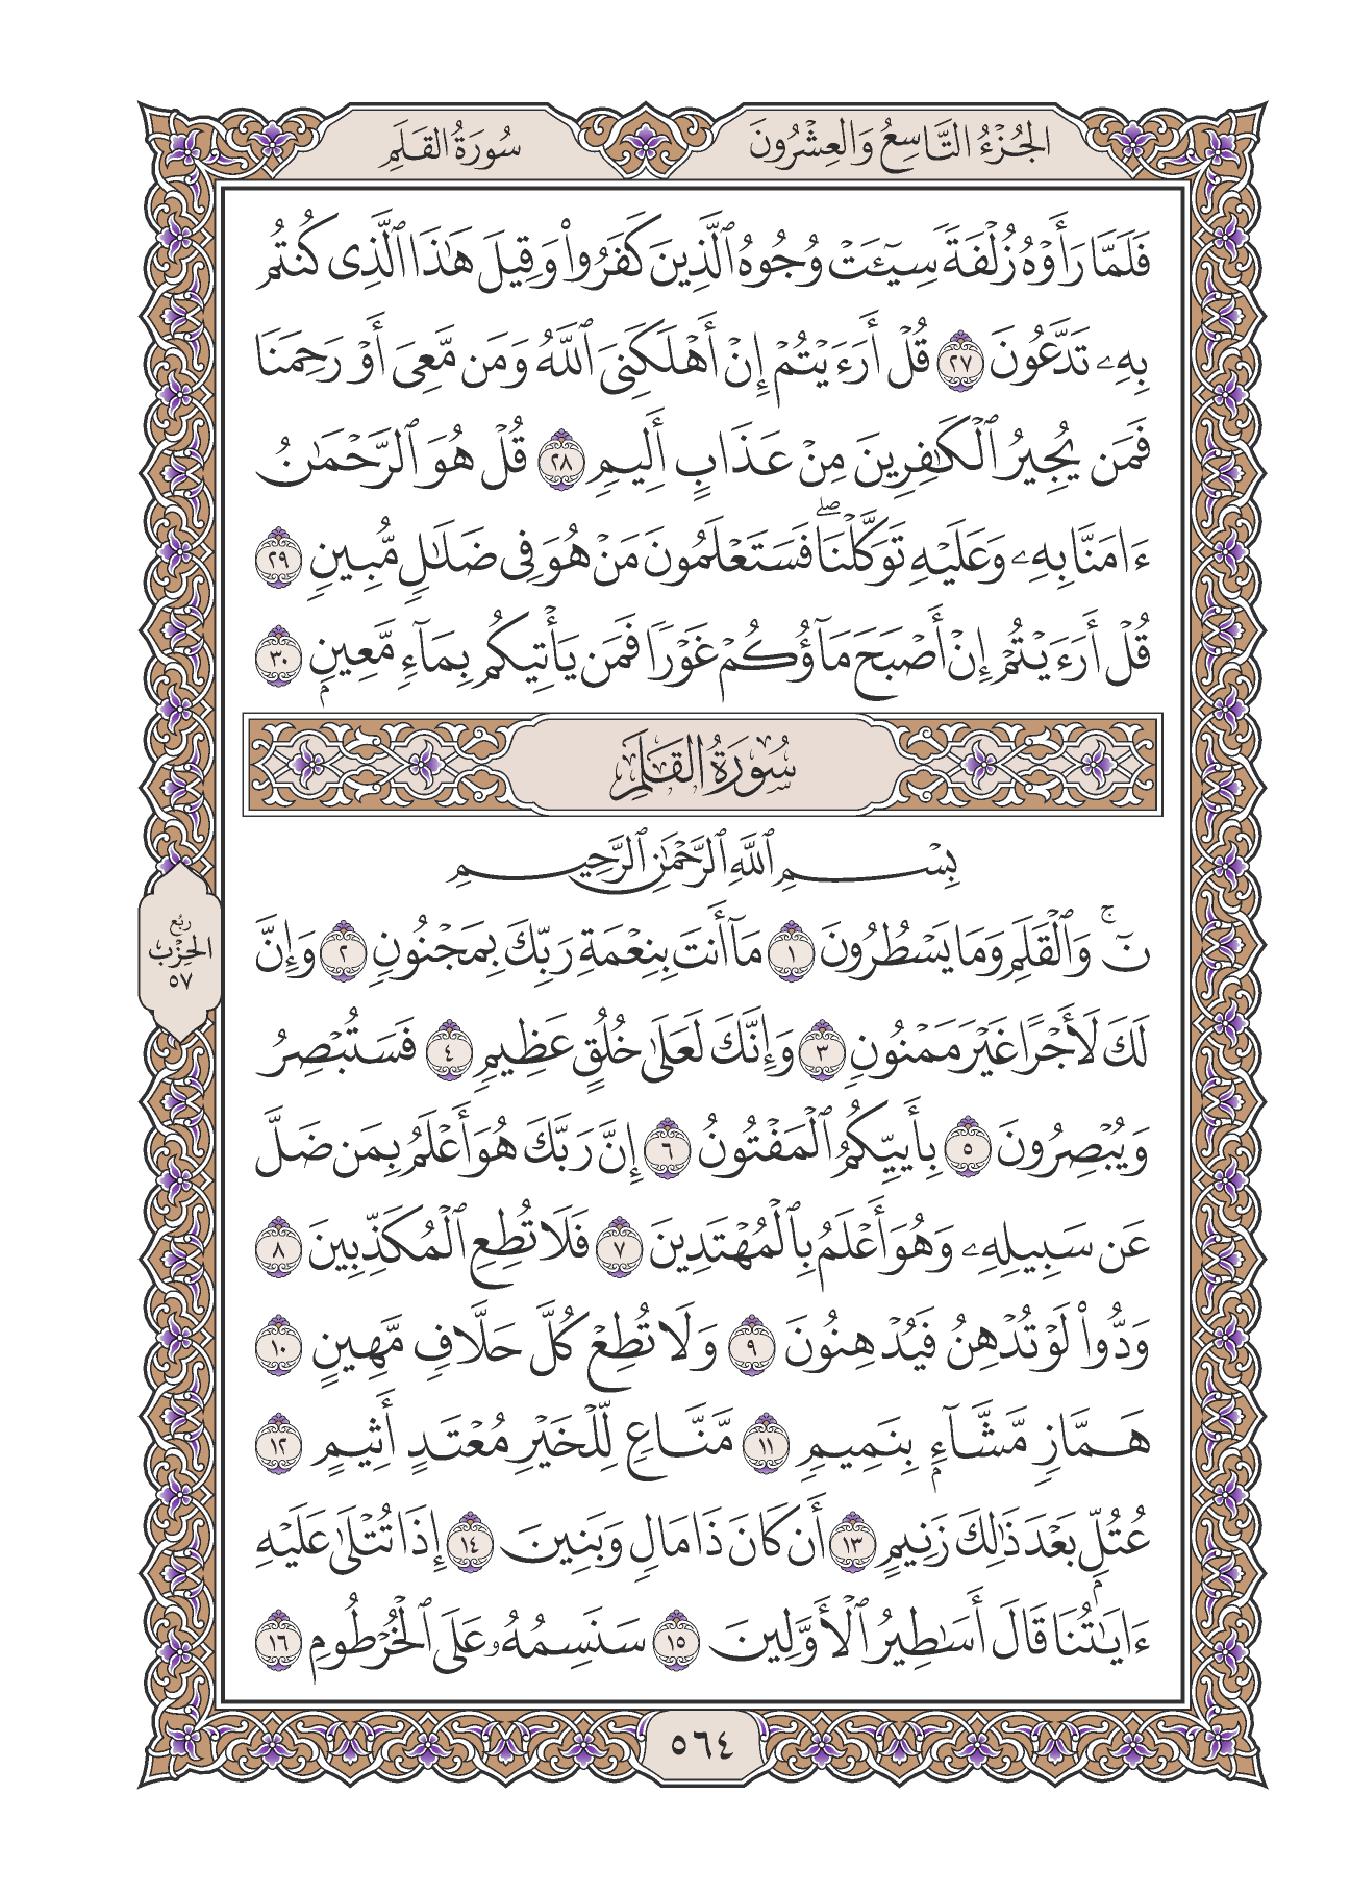 الجُزْءُ التَّاسِعُ وَالعِشْرُونَ
سُورَةُ القَلَمِ
فَلَمَّا رَأَوْهُ زُلْفَةً سِيٓـَٔتْ وُجُوهُ ٱلَّذِينَ كَفَرُواْ وَقِيلَ هَٰذَا ٱلَّذِى كُنتُم
بِهِۦ تَدَّعُونَ ٢٧ قُلْ أَرَءَيْتُمْ إِنْ أَهْلَكَنِىَ ٱللَّهُ وَمَن مَّعِىَ أَوْ رَحِمَنَا
فَمَن يُجِيرُ ٱلْكَٰفِرِينَ مِنْ عَذَابٍ أَلِيمٍ ٢٨ قُلْ هُوَ ٱلرَّحْمَٰنُ
ءَامَنَّا بِهِۦ وَعَلَيْهِ تَوَكَّلْنَاۖ فَسَتَعْلَمُونَ مَنْ هُوَ فِى ضَلَٰلٍ مُّبِينٍ ٢٩
قُلْ أَرَءَيْتُمْ إِنْ أَصْبَحَ مَآؤُكُمْ غَوْرًا فَمَن يَأْتِيكُم بِمَآءٍ مَّعِينٍۭ ٣٠
سُورَةُ القَلَمِ
بِسْمِ ٱللَّهِ ٱلرَّحْمَٰنِ ٱلرَّحِيمِ
نٓۚ وَٱلْقَلَمِ وَمَا يَسْطُرُونَ ١ مَآ أَنتَ بِنِعْمَةِ رَبِّكَ بِمَجْنُونٍ ٢ وَإِنَّ
لَكَ لَأَجْرًا غَيْرَ مَمْنُونٍ ٣ وَإِنَّكَ لَعَلَىٰ خُلُقٍ عَظِيمٍ ٤ فَسَتُبْصِرُ
وَيُبْصِرُونَ ٥ بِأَييِّكُمُ ٱلْمَفْتُونُ ٦ إِنَّ رَبَّكَ هُوَ أَعْلَمُ بِمَن ضَلَّ
عَن سَبِيلِهِۦ وَهُوَ أَعْلَمُ بِٱلْمُهْتَدِينَ ٧ فَلَا تُطِعِ ٱلْمُكَذِّبِينَ ٨
وَدُّواْ لَوْ تُدْهِنُ فَيُدْهِنُونَ ٩ وَلَا تُطِعْ كُلَّ حَلَّافٍ مَّهِينٍ ١٠
هَمَّازٍ مَّشَّآءٍۭ بِنَمِيمٍ ١١ مَّنَّاعٍ لِّلْخَيْرِ مُعْتَدٍ أَثِيمٍ ١٢
عُتُلٍّۭ بَعْدَ ذَٰلِكَ زَنِيمٍ ١٣ أَن كَانَ ذَا مَالٍ وَبَنِينَ ١٤ إِذَا تُتْلَىٰ عَلَيْهِ
ءَايَٰتُنَا قَالَ أَسَٰطِيرُ ٱلْأَوَّلِينَ ١٥ سَنَسِمُهُۥ عَلَى ٱلْخُرْطُومِ ١٦
رُبْع
الحِزْب
٥٧
٥٦٤